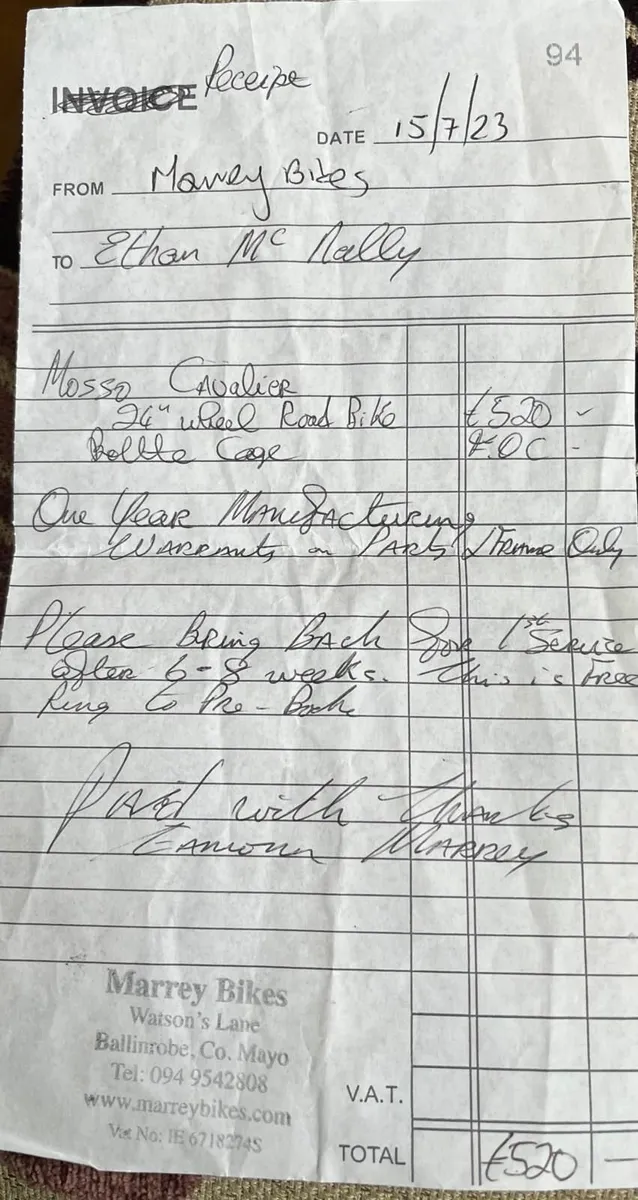 94
INVOICE Receipt
DATE 15/7/23
FROM Marrey Bikes
TO Ethan Mc Nally
Mosso Cavalier
24" wheel Road Bike €520 -
Bottle Cage F.O.C -
One Year Manufacturing
Warranty on Parts & Frame Only
Please Bring Back for 1st Service
after 6-8 weeks. This is Free
Ring to Pre-Book
Paid with Thanks
Eamonn Marrey
Marrey Bikes
Watson's Lane
Ballinrobe, Co. Mayo
Tel: 094 9542808
www.marreybikes.com
Vat No: IE 6718274S
V.A.T.
TOTAL €520 -